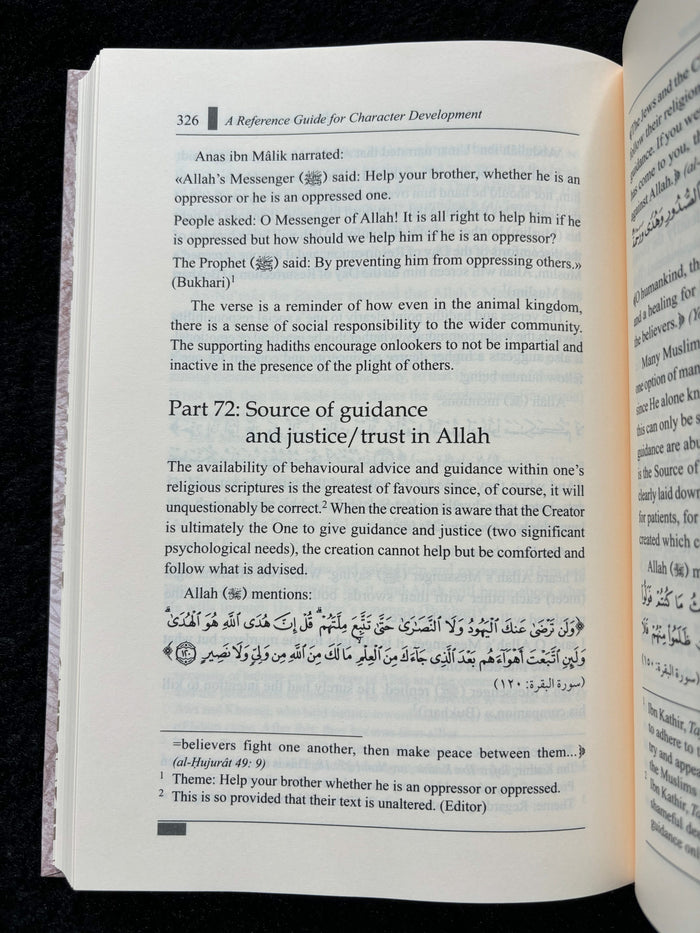 326 A Reference Guide for Character Development
Anas ibn Mâlik narrated:
«Allah's Messenger (ﷺ) said: Help your brother, whether he is an
oppressor or he is an oppressed one.
People asked: O Messenger of Allah! It is all right to help him if he
is oppressed but how should we help him if he is an oppressor?
The Prophet (ﷺ) said: By preventing him from oppressing others.»
(Bukhari)1
The verse is a reminder of how even in the animal kingdom,
there is a sense of social responsibility to the wider community.
The supporting hadiths encourage onlookers to not be impartial and
inactive in the presence of the plight of others.
Part 72: Source of guidance
and justice/trust in Allah
The availability of behavioural advice and guidance within one's
religious scriptures is the greatest of favours since, of course, it will
unquestionably be correct.2 When the creation is aware that the Creator
is ultimately the One to give guidance and justice (two significant
psychological needs), the creation cannot help but be comforted and
follow what is advised.
Allah (ﷻ) mentions:
﴿وَلَن تَرْضَىٰ عَنكَ ٱلْيَهُودُ وَلَا ٱلنَّصَـٰرَىٰ حَتَّىٰ تَتَّبِعَ مِلَّتَهُمْ ۗ قُلْ إِنَّ هُدَى ٱللَّهِ هُوَ ٱلْهُدَىٰ ۗ
وَلَئِنِ ٱتَّبَعْتَ أَهْوَآءَهُم بَعْدَ ٱلَّذِى جَآءَكَ مِنَ ٱلْعِلْمِ ۙ مَا لَكَ مِنَ ٱللَّهِ مِن وَلِىٍّ وَلَا نَصِيرٍ ١٢٠﴾
(سورة البقرة: ١٢٠)
=believers fight one another, then make peace between them...﴾
(al-Ḥujurât 49: 9)
1 Theme: Help your brother whether he is an oppressor or oppressed.
2 This is so provided that their text is unaltered. (Editor)
﴿The Jews and the C
follow their religion
guidance. If you we
has come to you, th
against Allah.﴾ (al-
﴿O humankind, th
and a healing for
the believers.﴾ (Y
Many Muslim
one option of man
since He alone kn
this can only be s
guidance are abu
is the Source of
clearly laid down
for patients, for
created which c
Allah (ﷻ) m
1 Ibn Kathir, Ta
to adhere to t
try and appea
the Muslims
2 Ibn Kathir, Ta
shameful dee
guidance onl